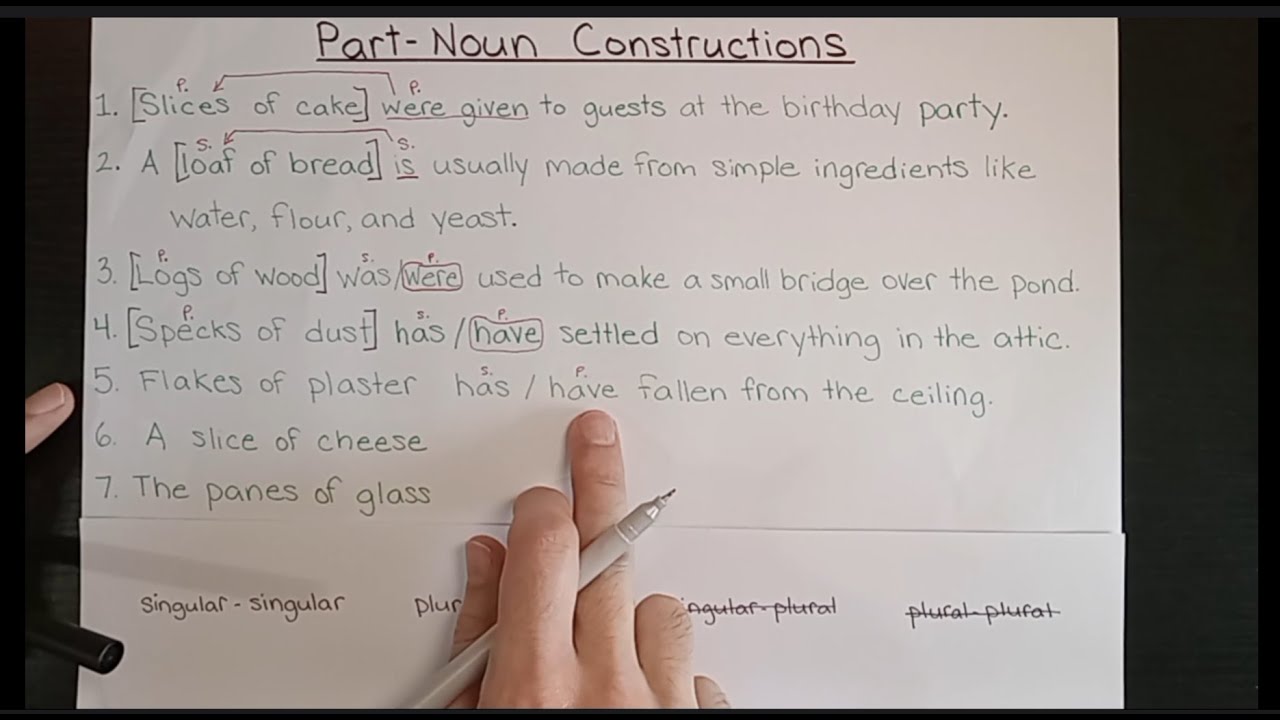 Part-Noun Constructions
p. p.
1. [Slices of cake] were given to guests at the birthday party.
s. s.
2. A [loaf of bread] is usually made from simple ingredients like
water, flour, and yeast.
p. s. p.
3. [Logs of wood] was/were used to make a small bridge over the pond.
p. s. p.
4. [Specks of dust] has/have settled on everything in the attic.
s. p.
5. Flakes of plaster has / have fallen from the ceiling.
6. A slice of cheese
7. The panes of glass
singular - singular plur ingular-plural plural-plural